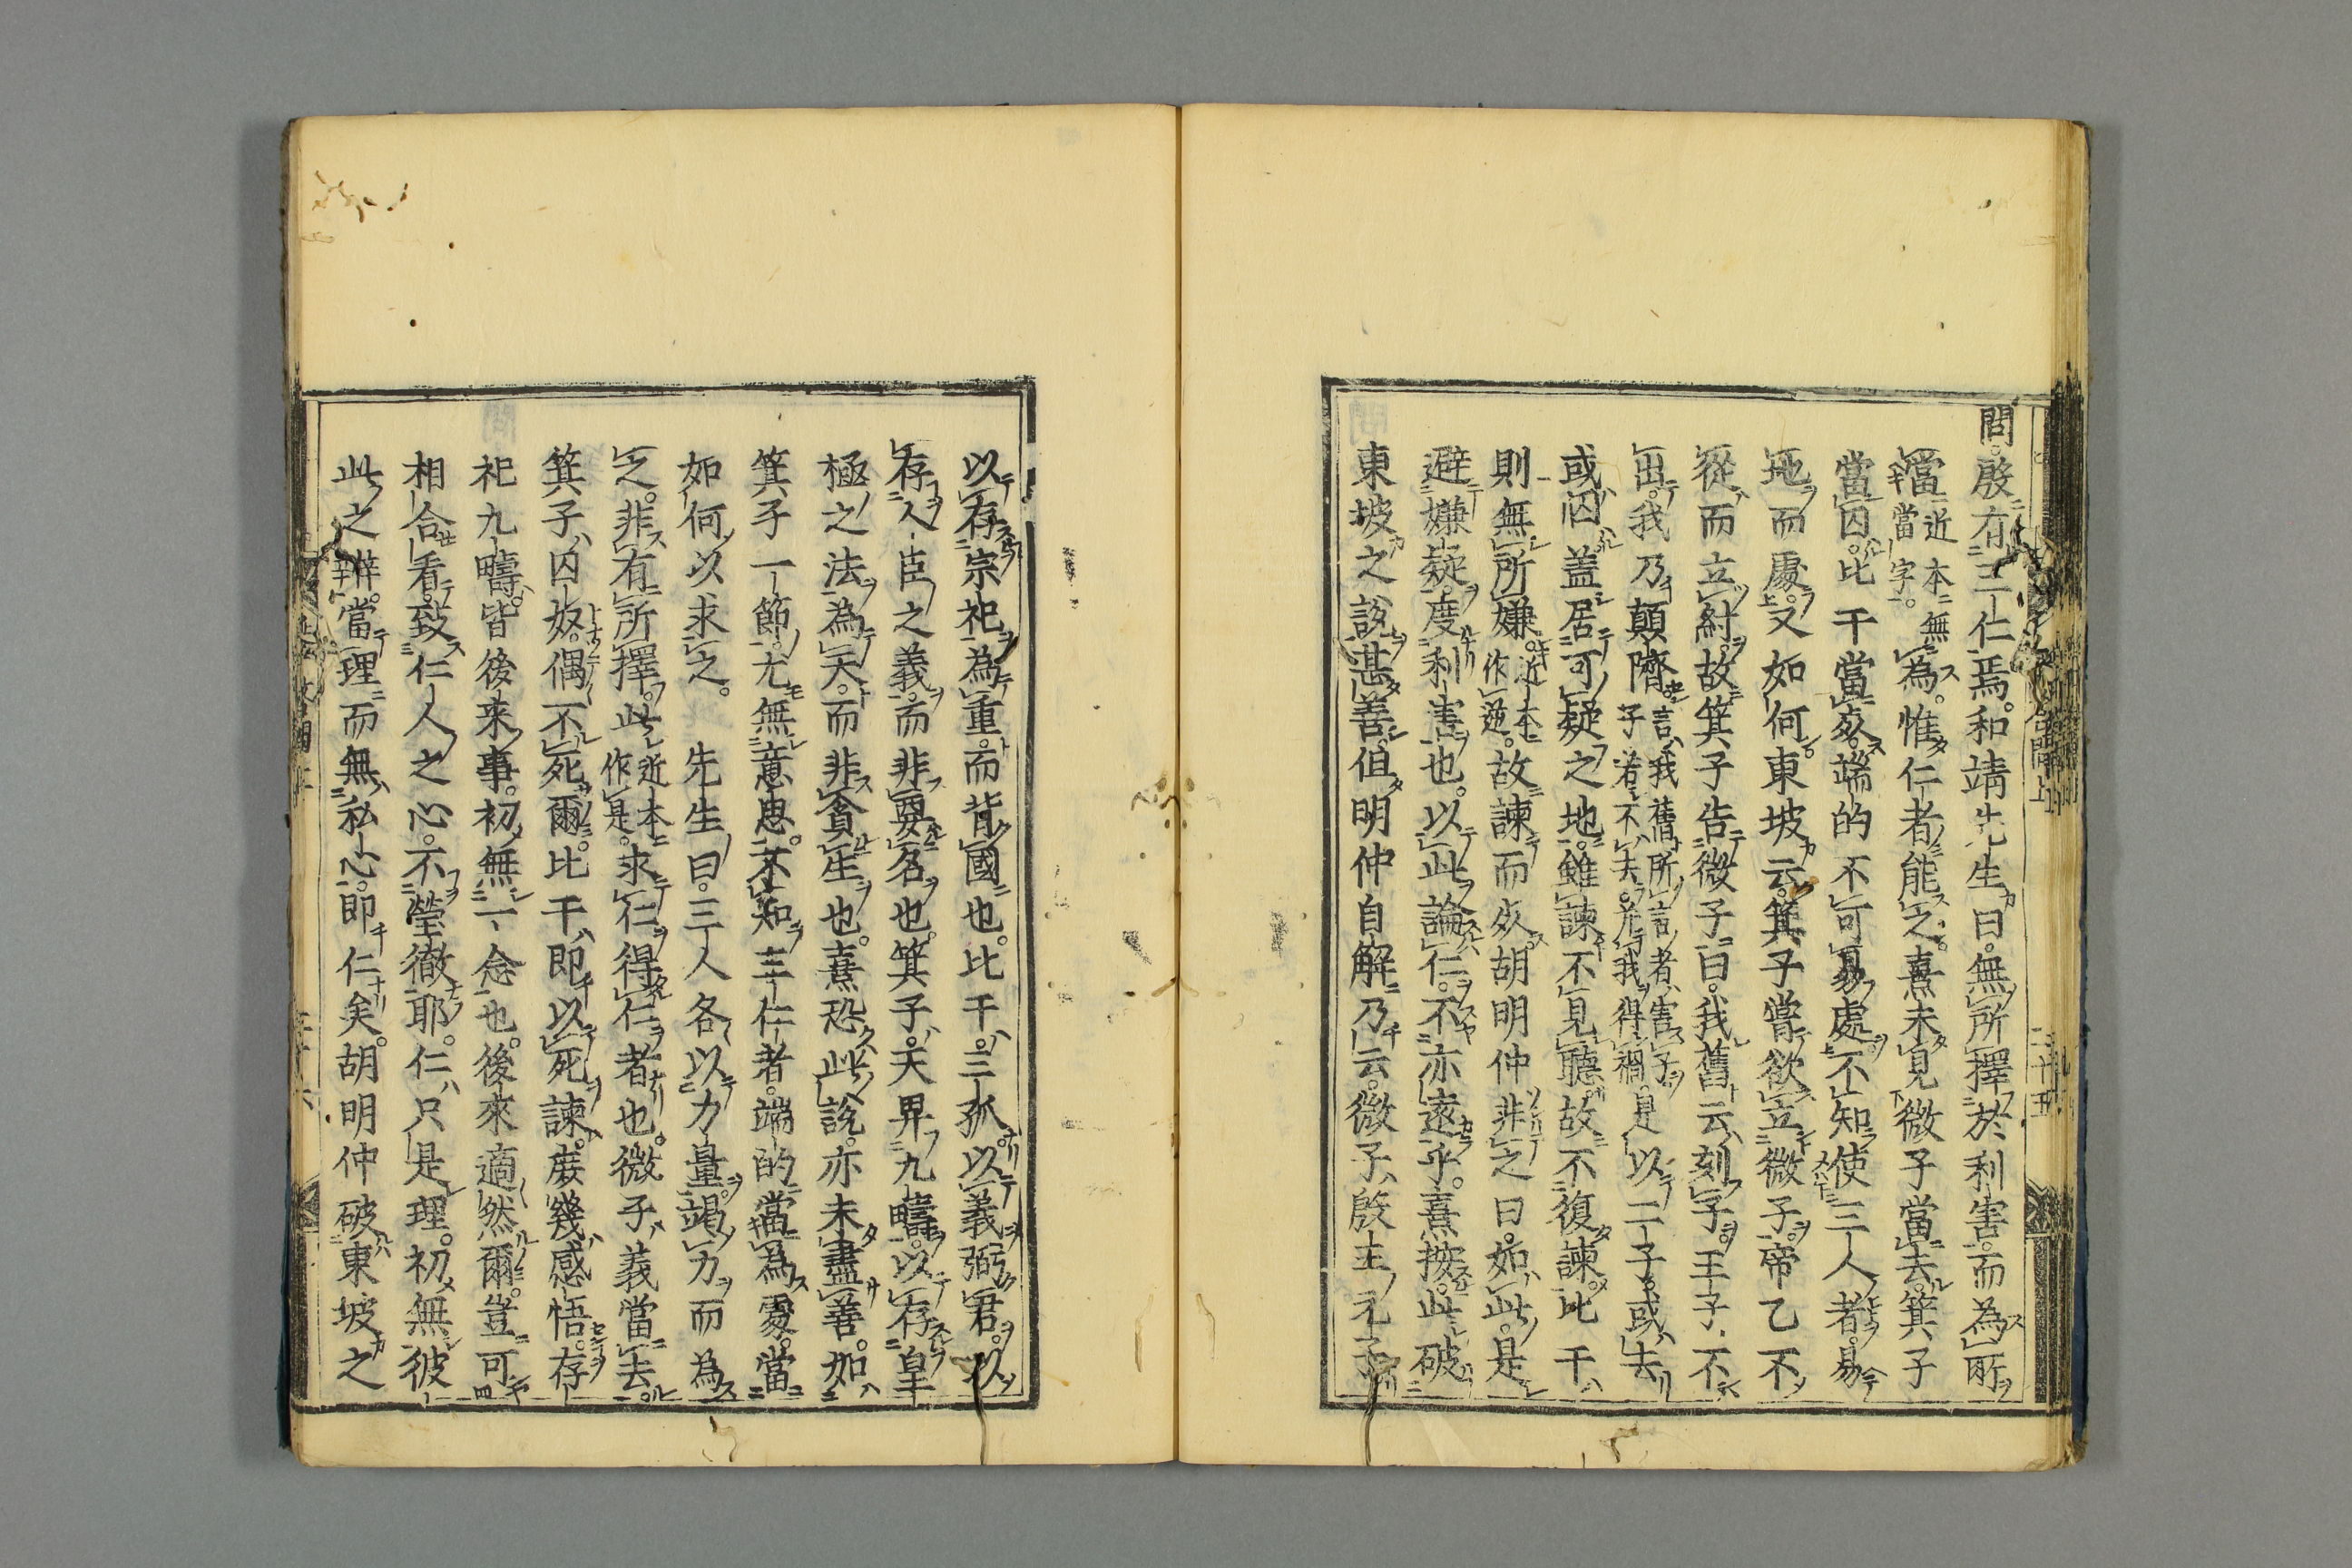 問。殷有三仁焉。和靖先生曰。無所擇於利害。而為所
當近本無當字。為。惟仁者能之。熹未見微子當去。箕子
當囚。比干當死。端的不可易處。不知使三人者。易
地而處。又如何。東坡云。箕子嘗欲立微子。帝乙不
從而立紂。故箕子告微子曰。我舊云刻子。王子不
出。我乃顛隮。言我舊所言者害子。子若不去。我得禍。是以二子或去
或囚。蓋居可疑之地。雖諫不見聽。故不復諫。比干
則無所嫌。近本作逃。故諫而死。胡明仲非之曰。如此。是
避嫌疑。度利害也。以此論仁。不亦遠乎。熹按。此破
東坡之說甚善。但明仲自解。乃云。微子殷王元子
以存宗祀為重。而非背國也。比干三孤。以義弼君。以
存人臣之義。而非要名也。箕子天畀九疇。以存皇
極之法為天。而非貪生也。熹恐此說亦未盡善。如
箕子一節。尤無意思。不知三仁者。端的當為處。當
如何以求之。先生曰。三人各以力量竭力而為
之。非有所擇。此近本作是。求仁得仁者也。微子義當去。
箕子囚奴。偶不死爾。比干即以死諫。庶幾感悟。存
祀九疇。皆後来事。初無一念也。後來適然爾。豈可
相合看。致仁人之心。不瑩徹耶。仁只是理。初無彼
此之辨。當理而無私心。即仁矣。胡明仲破東坡之